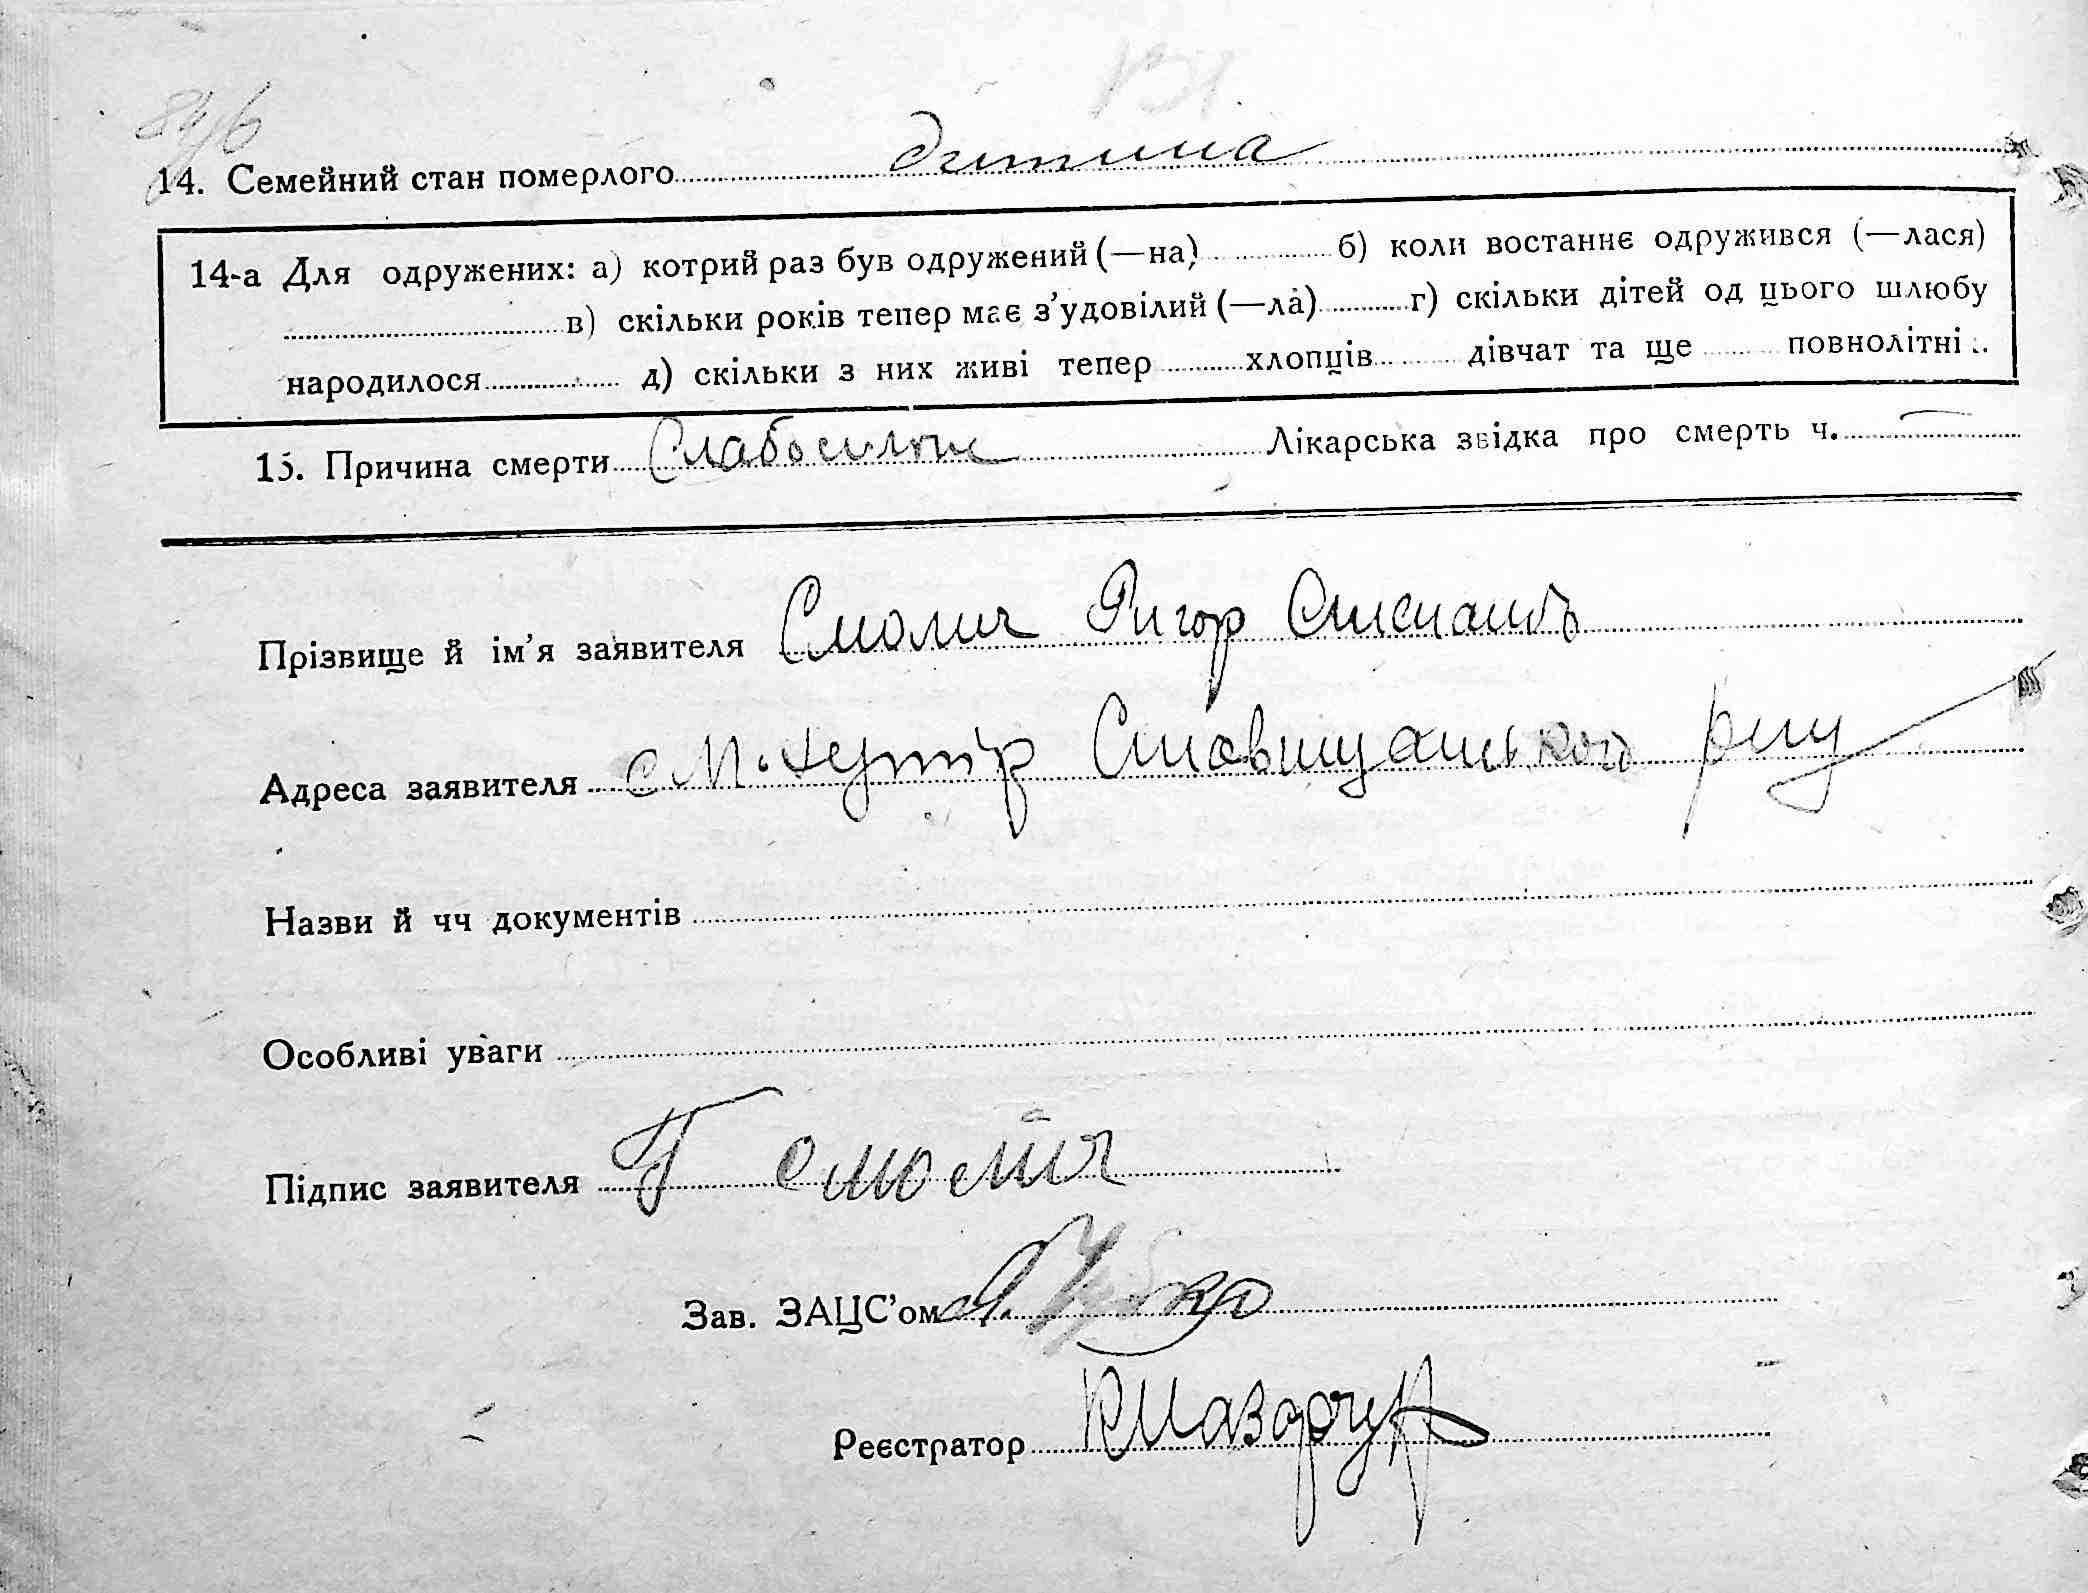 14. Семейний стан померлого дитина
14-а Для одружених: а) котрий раз був одружений (—на) б) коли востаннє одружився (—лася)
в) скільки років тепер має з’удовілий (—ла) г) скільки дітей од цього шлюбу
народилося д) скільки з них живі тепер хлопців дівчат та ще повнолітні
15. Причина смерти Слабосилля Лікарська звідка про смерть ч. —
Прізвище й ім’я заявителя Смолич Григор Степанов
Адреса заявителя с М. хутір Ставищанського р-ну
Назви й чч документів
Особливі уваги
Підпис заявителя Г Смоліч
Зав. ЗАЦС’ом
Реєстратор